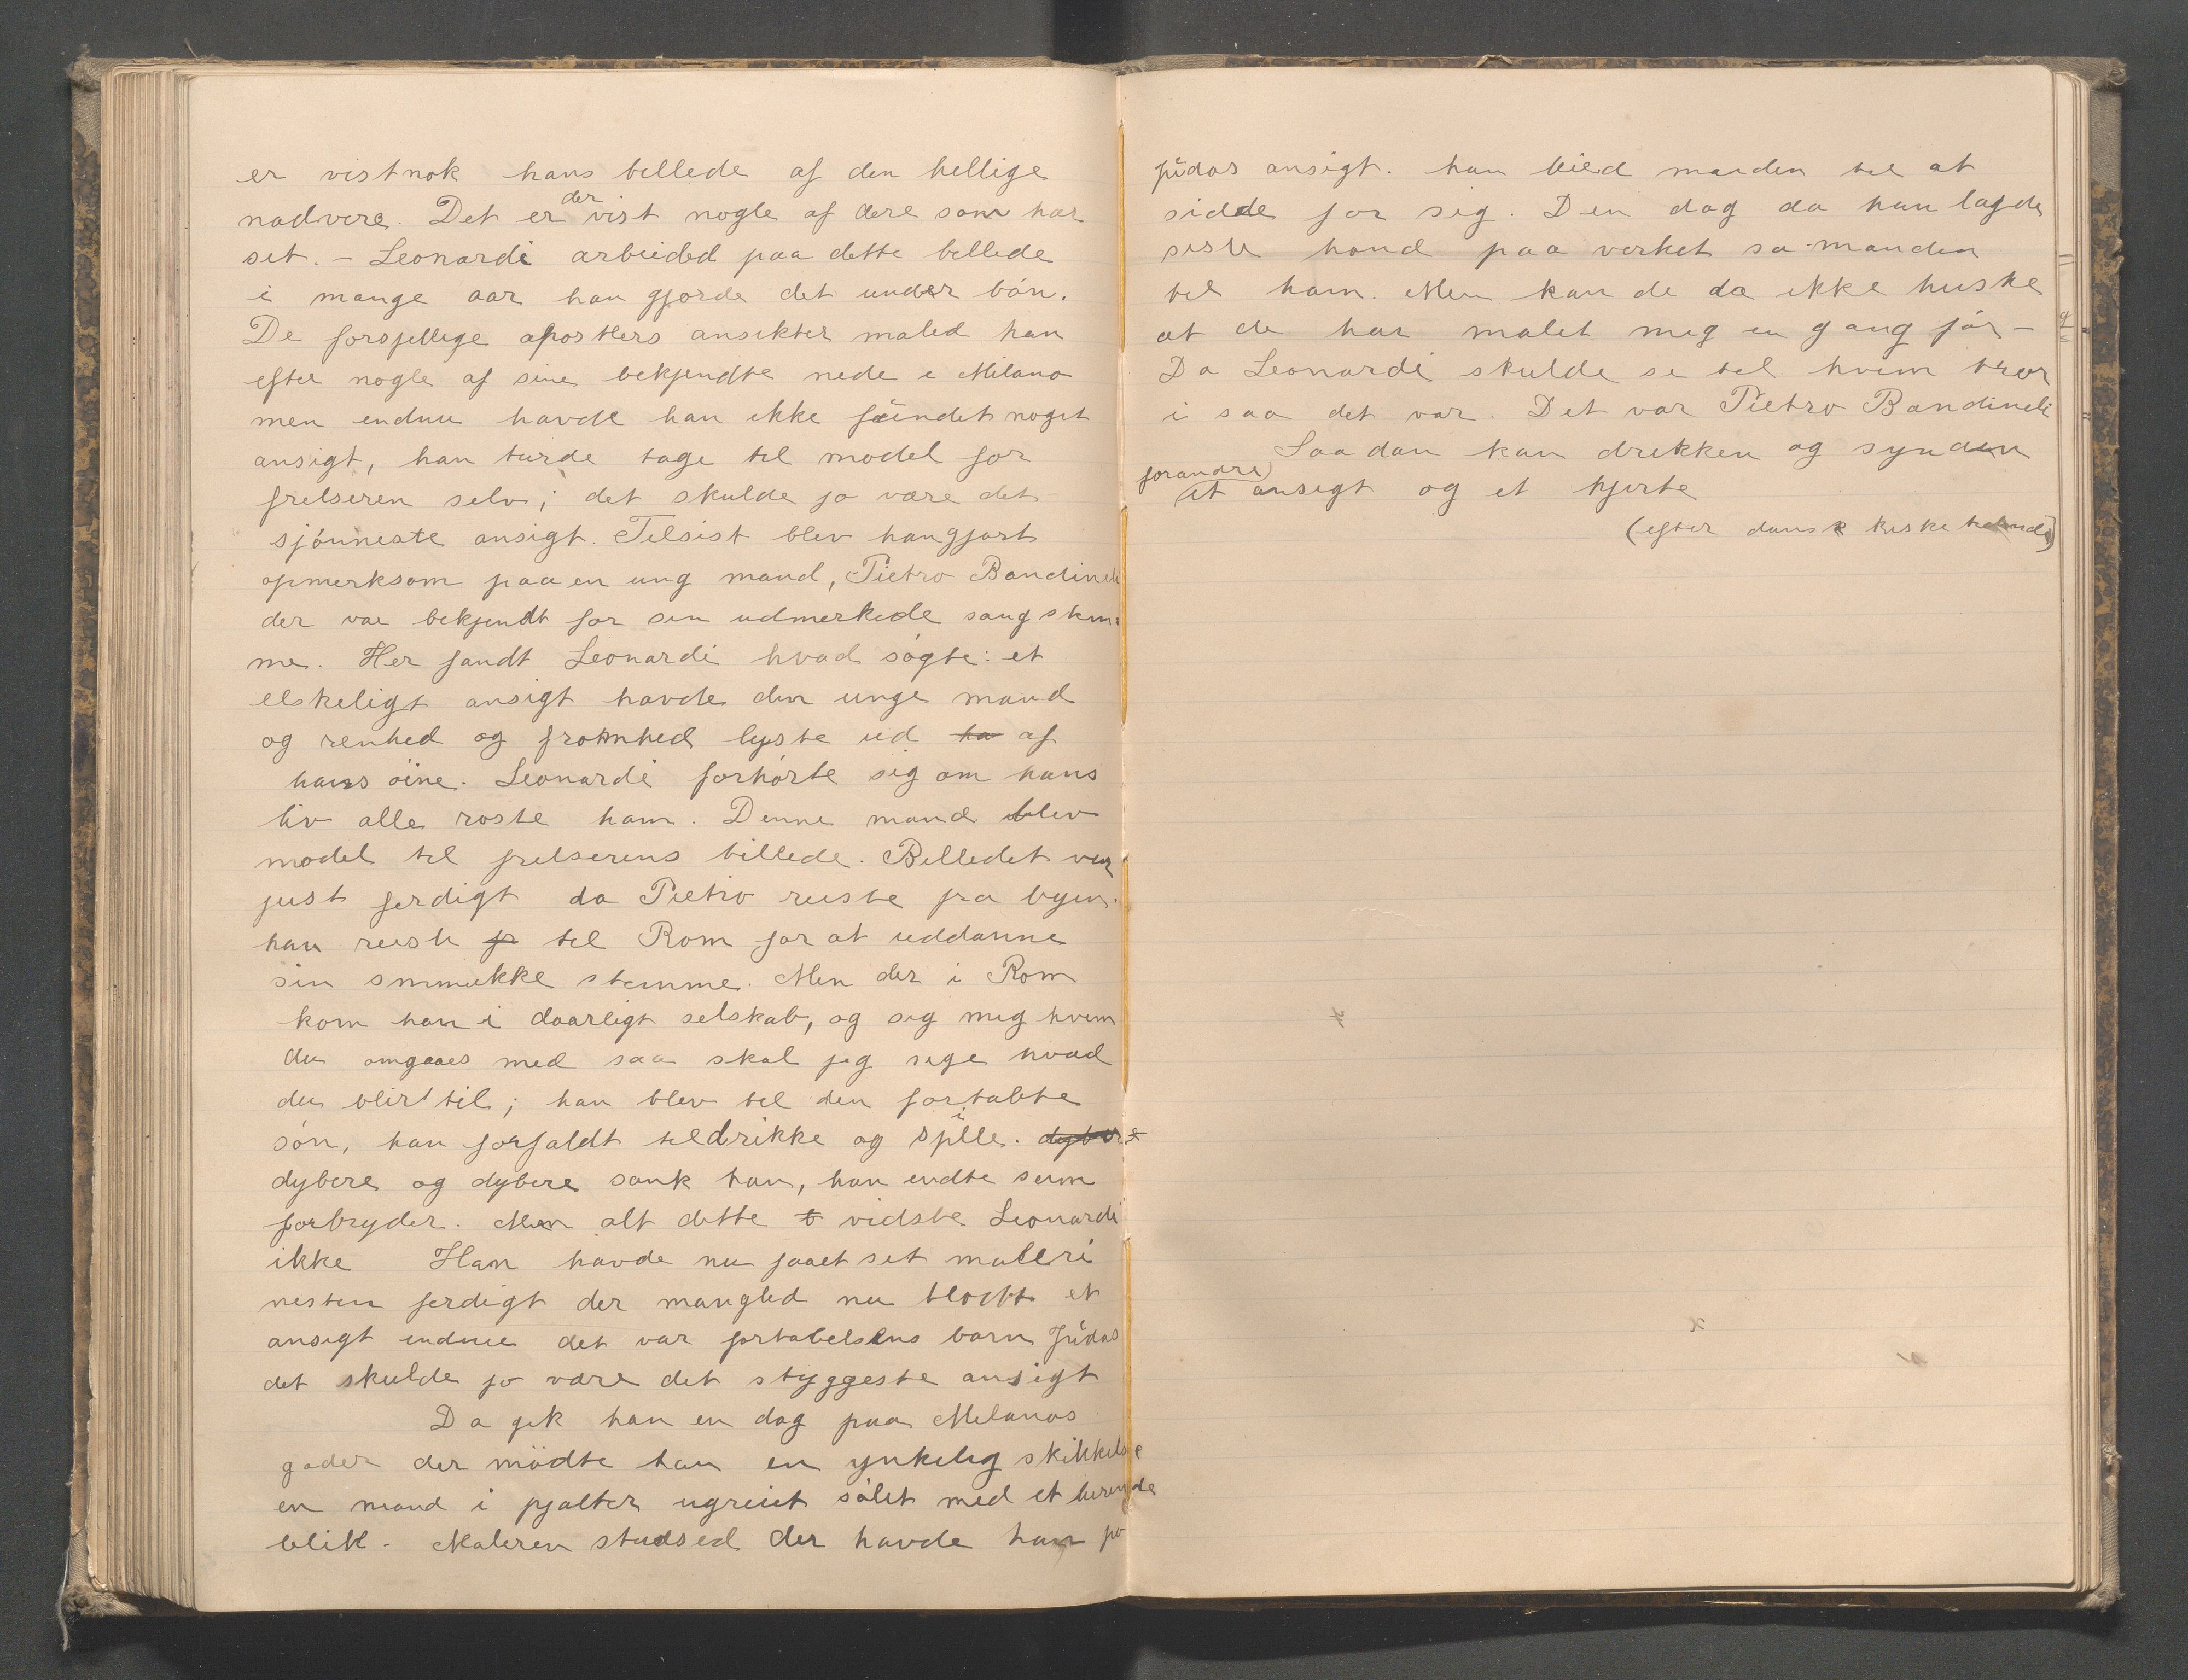 er vistnok hans billede af den hellige
nadvere. Det er der vist nogle af dere som har
set. – Leonardi arbeided paa dette billede
i mange aar han gjorde det under bön.
De forsjellige apostlers ansikter maled han
efter nogle af sine bekjendte nede i Milano
men endnu havde han ikke fundet noget
ansigt, han turde tage til model for
frelseren selv; det skulde jo være det
sjönneste ansigt. Tilsist blev han gjort
opmerksom paa en ung mand, Pietro Bandineli
der var bekjendt for sin udmerkede sang stem=
me. Her fandt Leonardi hvad sögte: et
elskeligt ansigt havde den unge mand
og renhed og fromhed lyste ud ha af
hans öine. Leonardi forhörte sig om hans
liv alle roste ham. Denne mand blev
model til frelserens billede. Billedet var
just ferdigt da Pietro reiste fra byen.
han reiste fr til Rom for at uddanne
sin smmukke stemme. Men der i Rom
kom han i daarligt selskab, og sig mig hvem
du omgaaes med saa skal jeg sige hvad
du blir til; han blev til den fortabte
sön, han forfaldt til drikke og spille. dybere
dybere og dybere sank han, han endte som
forbryder. Men alt dette t vidste Leonardi
ikke Han havde nu faaet set maleri
nesten ferdigt der mangled nu blott et
ansigt endnu det var fortabelsens barn Judas
det skulde jo være det styggeste ansigt
Da gik han en dag paa Milanos
gader der mödte han en ynkelig skikkelse
en mand i pjalter ugreiet sölet med et
blik – Maleren studsed der havde han jo
Judas ansigt. han bied manden til at
sidde for sig. Den dag da han lagde
siste hand paa verket sa manden
til ham. Men kan de da ikke huske
at de har malet mig en gang för –
Da Leonardi skulde se til hvem tror
i saa det var. Det var Pietro Bandineli
Saadan kan drikken og synden
forandre
et ansigt og et hjerte
(efter dansk